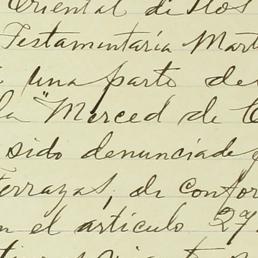 Oriental de los
Testamentaría Mart
una parte de
la "Merced de
sido denunciada
Terrazas, de confor
n el artículo 27